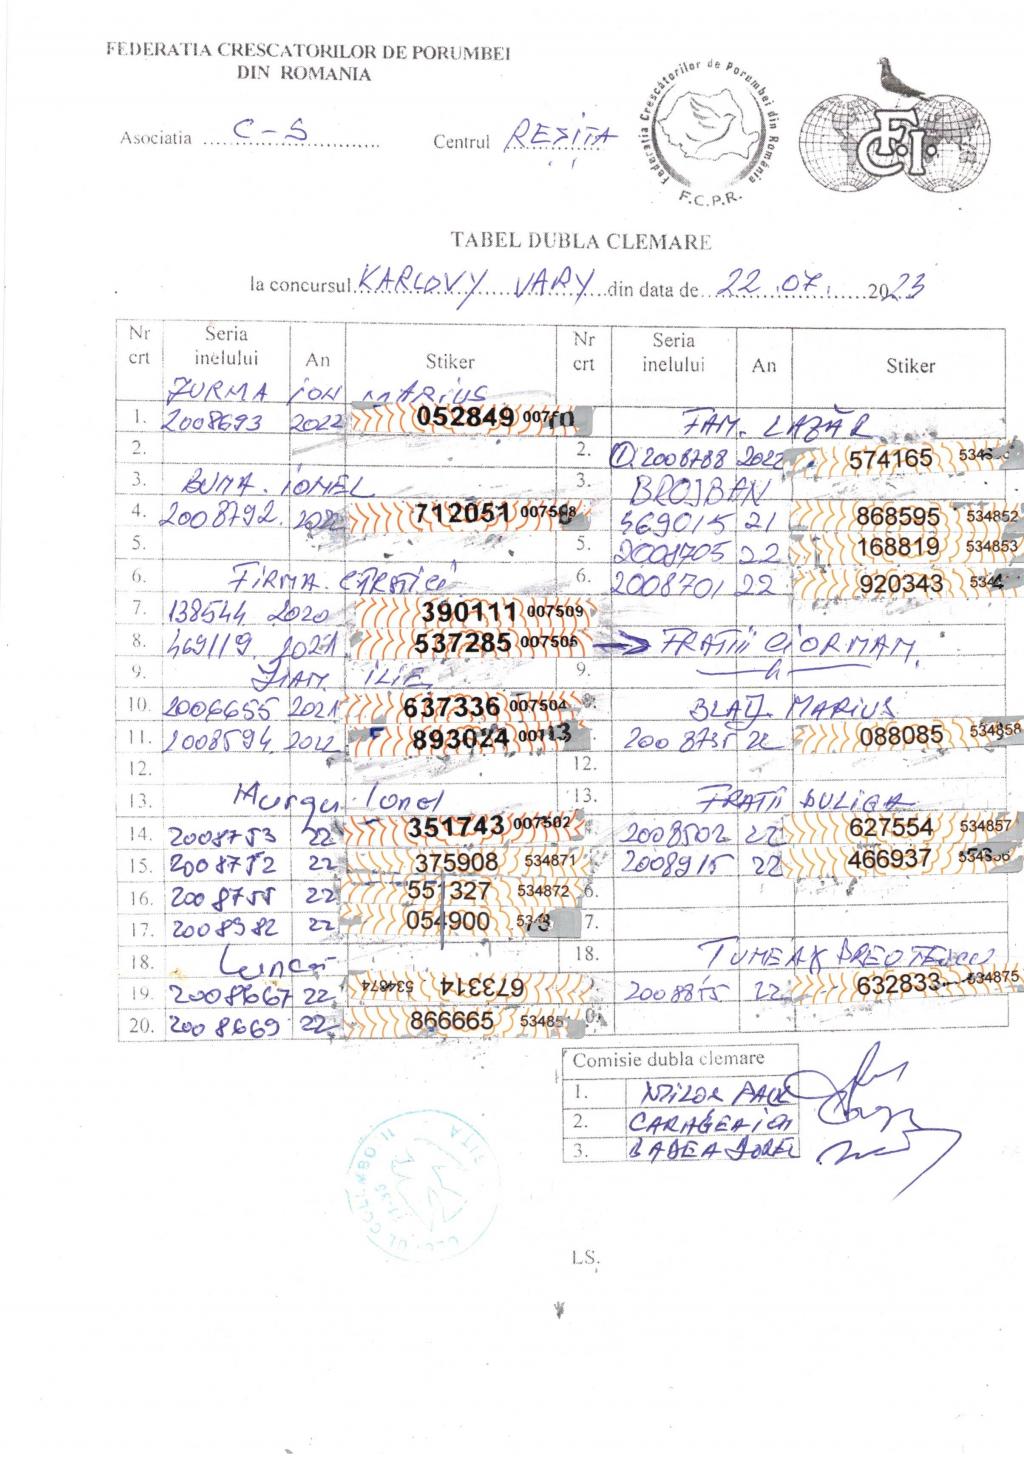 FEDERATIA CRESCATORILOR DE PORUMBEI
DIN ROMANIA
Asociatia C-S
Centrul REȘIȚA
Federatia Crescătorilor de Porumbei din România
F.C.P.R.
FCI
TABEL DUBLA CLEMARE
la concursul KARLOVY VARY din data de 22.07. 2023
Nr crt Seria inelului An Stiker Nr crt Seria inelului An Stiker
ION MARIUS
1. 2008693 2022 052849 FAM. LAZĂR
2. 2. 1 2008788 2022 574165
3. BUMA. IONEL 3. BROJBAN
4. 2008792. 712051 469015 21 868595 534852
5. 5. 2008705 22 168819 534853
6. FIRMA. 6. 2008701 22 920343
7. 138544 2020 390111 007509
8. 469119. 2021 537285 007505 FRATII CIORMAN.
9. ILIE 9.
10. 2006655 2021 637336 007504 BLAJ MARIUS
11. 2008594. 2022 893024 2008735 22 088085 534858
12. 12.
13. Murgu Ionel 13. FRATII BULIGA
14. 2008753 22 351743 007502 2008502 22 627554 534857
15. 2008752 22 375908 534871 2008915 22 466937
16. 2008755 22 551327 534872 6.
17. 2008982 22 054900 7.
18. 18.
19. 2008667 22 673314 534874 2008815 22 632833 534875
20. 2008669 22 866665
Comisie dubla clemare
1.
2. CARAGEA ION
3. BADEA DOREL
LS.